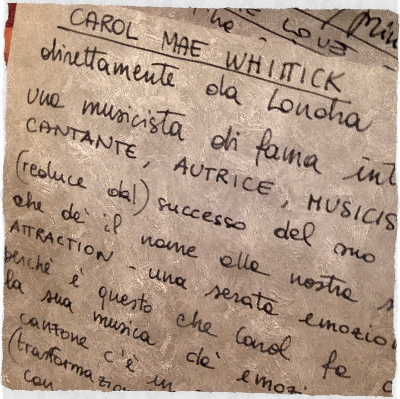 LOVE
CAROL MAE WHITTICK
direttamente da Londra
una musicista di fama int
CANTANTE, AUTRICE, MUSICIS
(reduce dal) successo del suo
che dè il nome alla nostra s
ATTRACTION - una serata emozio
perchè è questo che Carol fa c
la sua musica dà emozi
canzone c'è in
(trasformazio
con